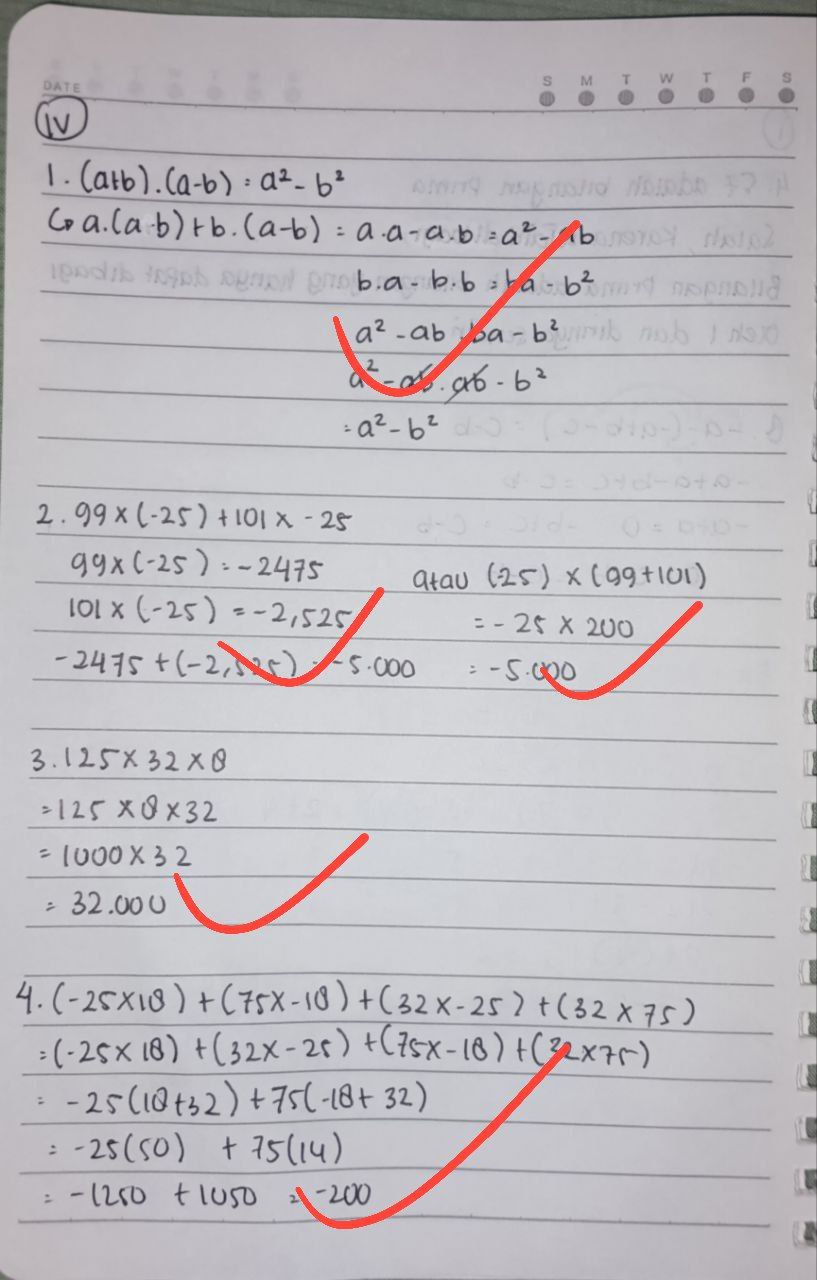 DATE
S M T W T F S
IV
1. (a+b).(a-b) = a² - b²
↳ a.(a-b) + b.(a-b) = a.a - a.b = a² - ab
b.a - b.b = ba - b²
a² - ab ba - b²
a² - ab . ab - b²
= a² - b²
2. 99 x (-25) + 101 x -25
99 x (-25) = -2475
atau (-25) x (99+101)
101 x (-25) = -2,525
= -25 x 200
-2475 + (-2,525) = -5.000
= -5.000
3. 125 x 32 x 8
= 125 x 8 x 32
= 1000 x 32
= 32.000
4. (-25x18) + (75x-18) + (32x-25) + (32 x 75)
= (-25x18) + (32x-25) + (75x-18) + (32x75)
= -25(18+32) + 75(-18+32)
= -25(50) + 75(14)
= -1250 + 1050 = -200